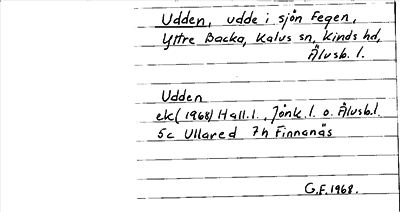 Udden, udde i sjön Fegen,
Yttre Backa, Kalvs sn, Kinds hd,
Älvsb. l.
Udden
ek (1968) Hall. l., Jönk. l. o. Älvsb. l.
5c Ullared 7h Finnanäs
G.F. 1968.